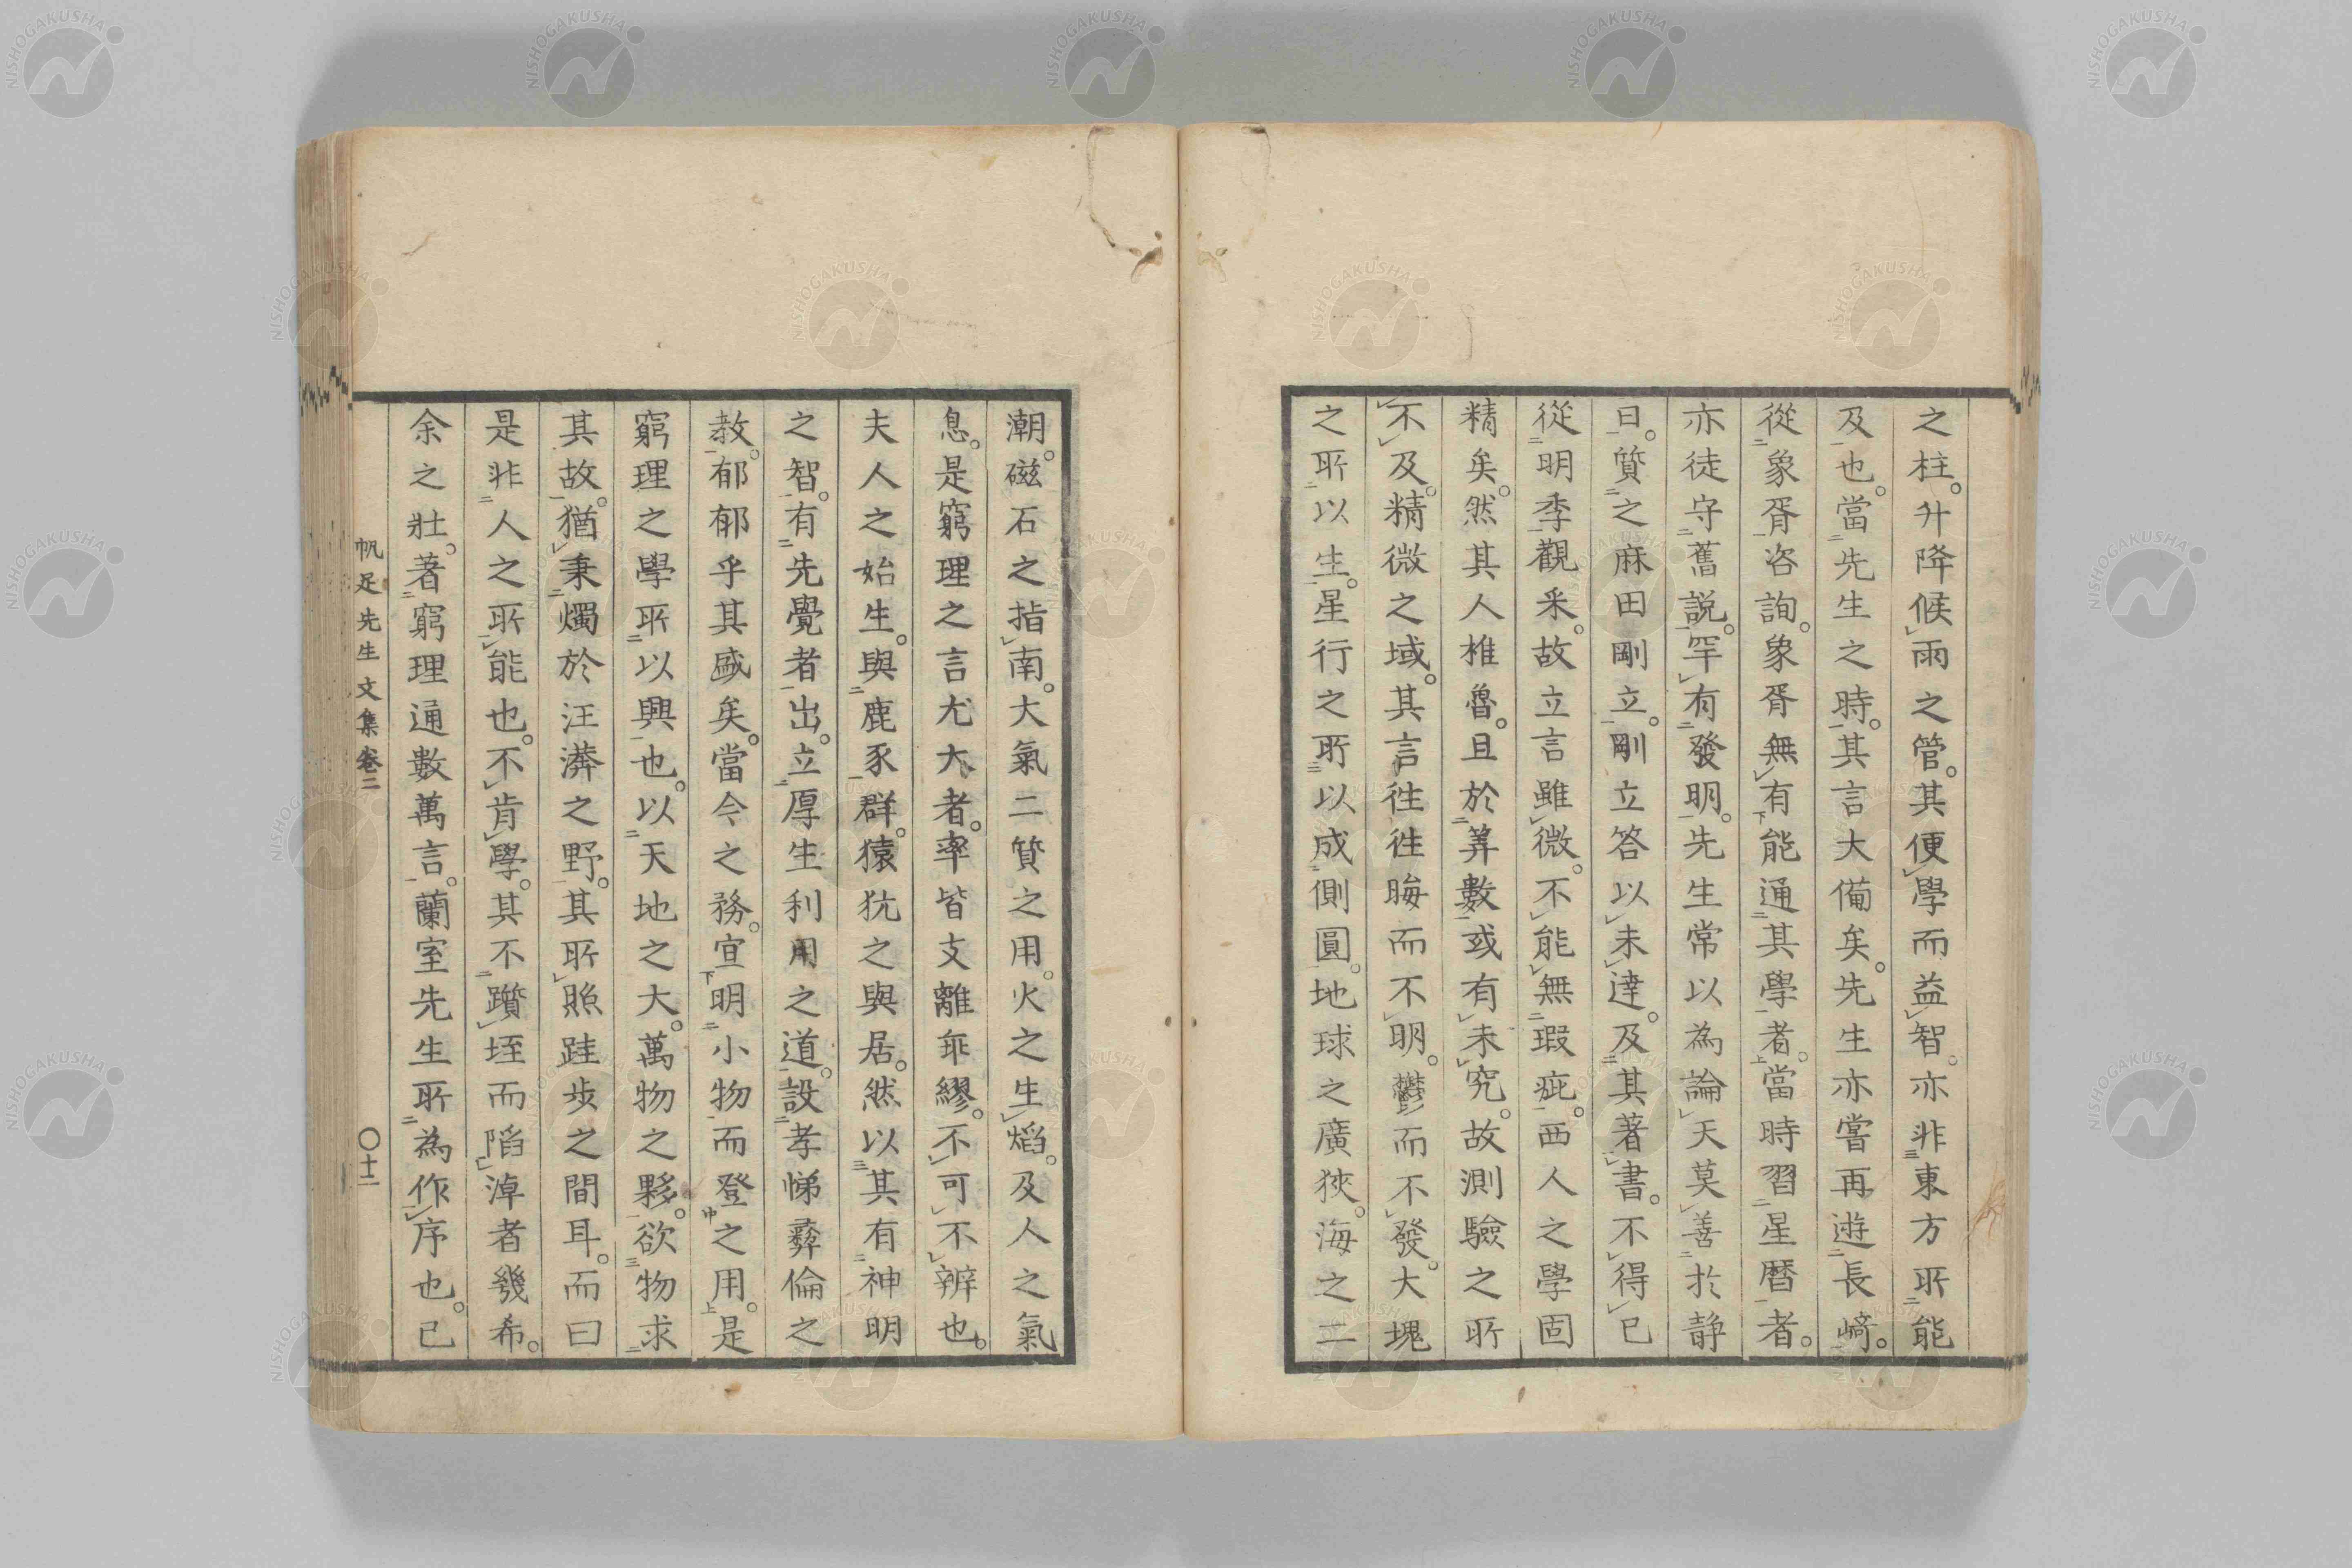 之柱。升降候雨之管。其便學而益智。亦非東方所能
及也。當先生之時。其言大備矣。先生亦嘗再遊長崎。
從象胥咨詢。象胥無有能通其學者。當時習星暦者。
亦徒守舊説。罕有發明。先生常以為論天莫善於静
日。質之麻田剛立。剛立答以未達。及其著書。不得已
從明季觀釆。故立言雖微。不能無瑕疵。西人之學固
精矣。然其人椎魯。且於筭數或有未究。故測驗之所
不及。精微之域。其言徃徃晦而不明。鬱而不發。大塊
之所以生。星行之所以成側圓。地球之廣狹。海之二
潮。磁石之指南。大氣二質之用。火之生焰。及人之氣
息。是窮理之言尤大者。率皆支離乖繆。不可不辨也。
夫人之始生。與鹿豕群。猿狖之與居。然以其有神明
之智。有先覺者出。立厚生利用之道。設孝悌彝倫之
教。郁郁乎其盛矣。當今之務。宣明小物而登之用。是
窮理之學所以興也。以天地之大。萬物之夥。欲物求
其故。猶秉燭於汪漭之野。其所照跬步之間耳。而曰
是非人之所能也。不肯學。其不躓垤而陷淖者幾希。
余之壯。著窮理通數萬言。蘭室先生所為作序也。已
帆足先生文集卷二
〇十二
NISHOGAKUSHA